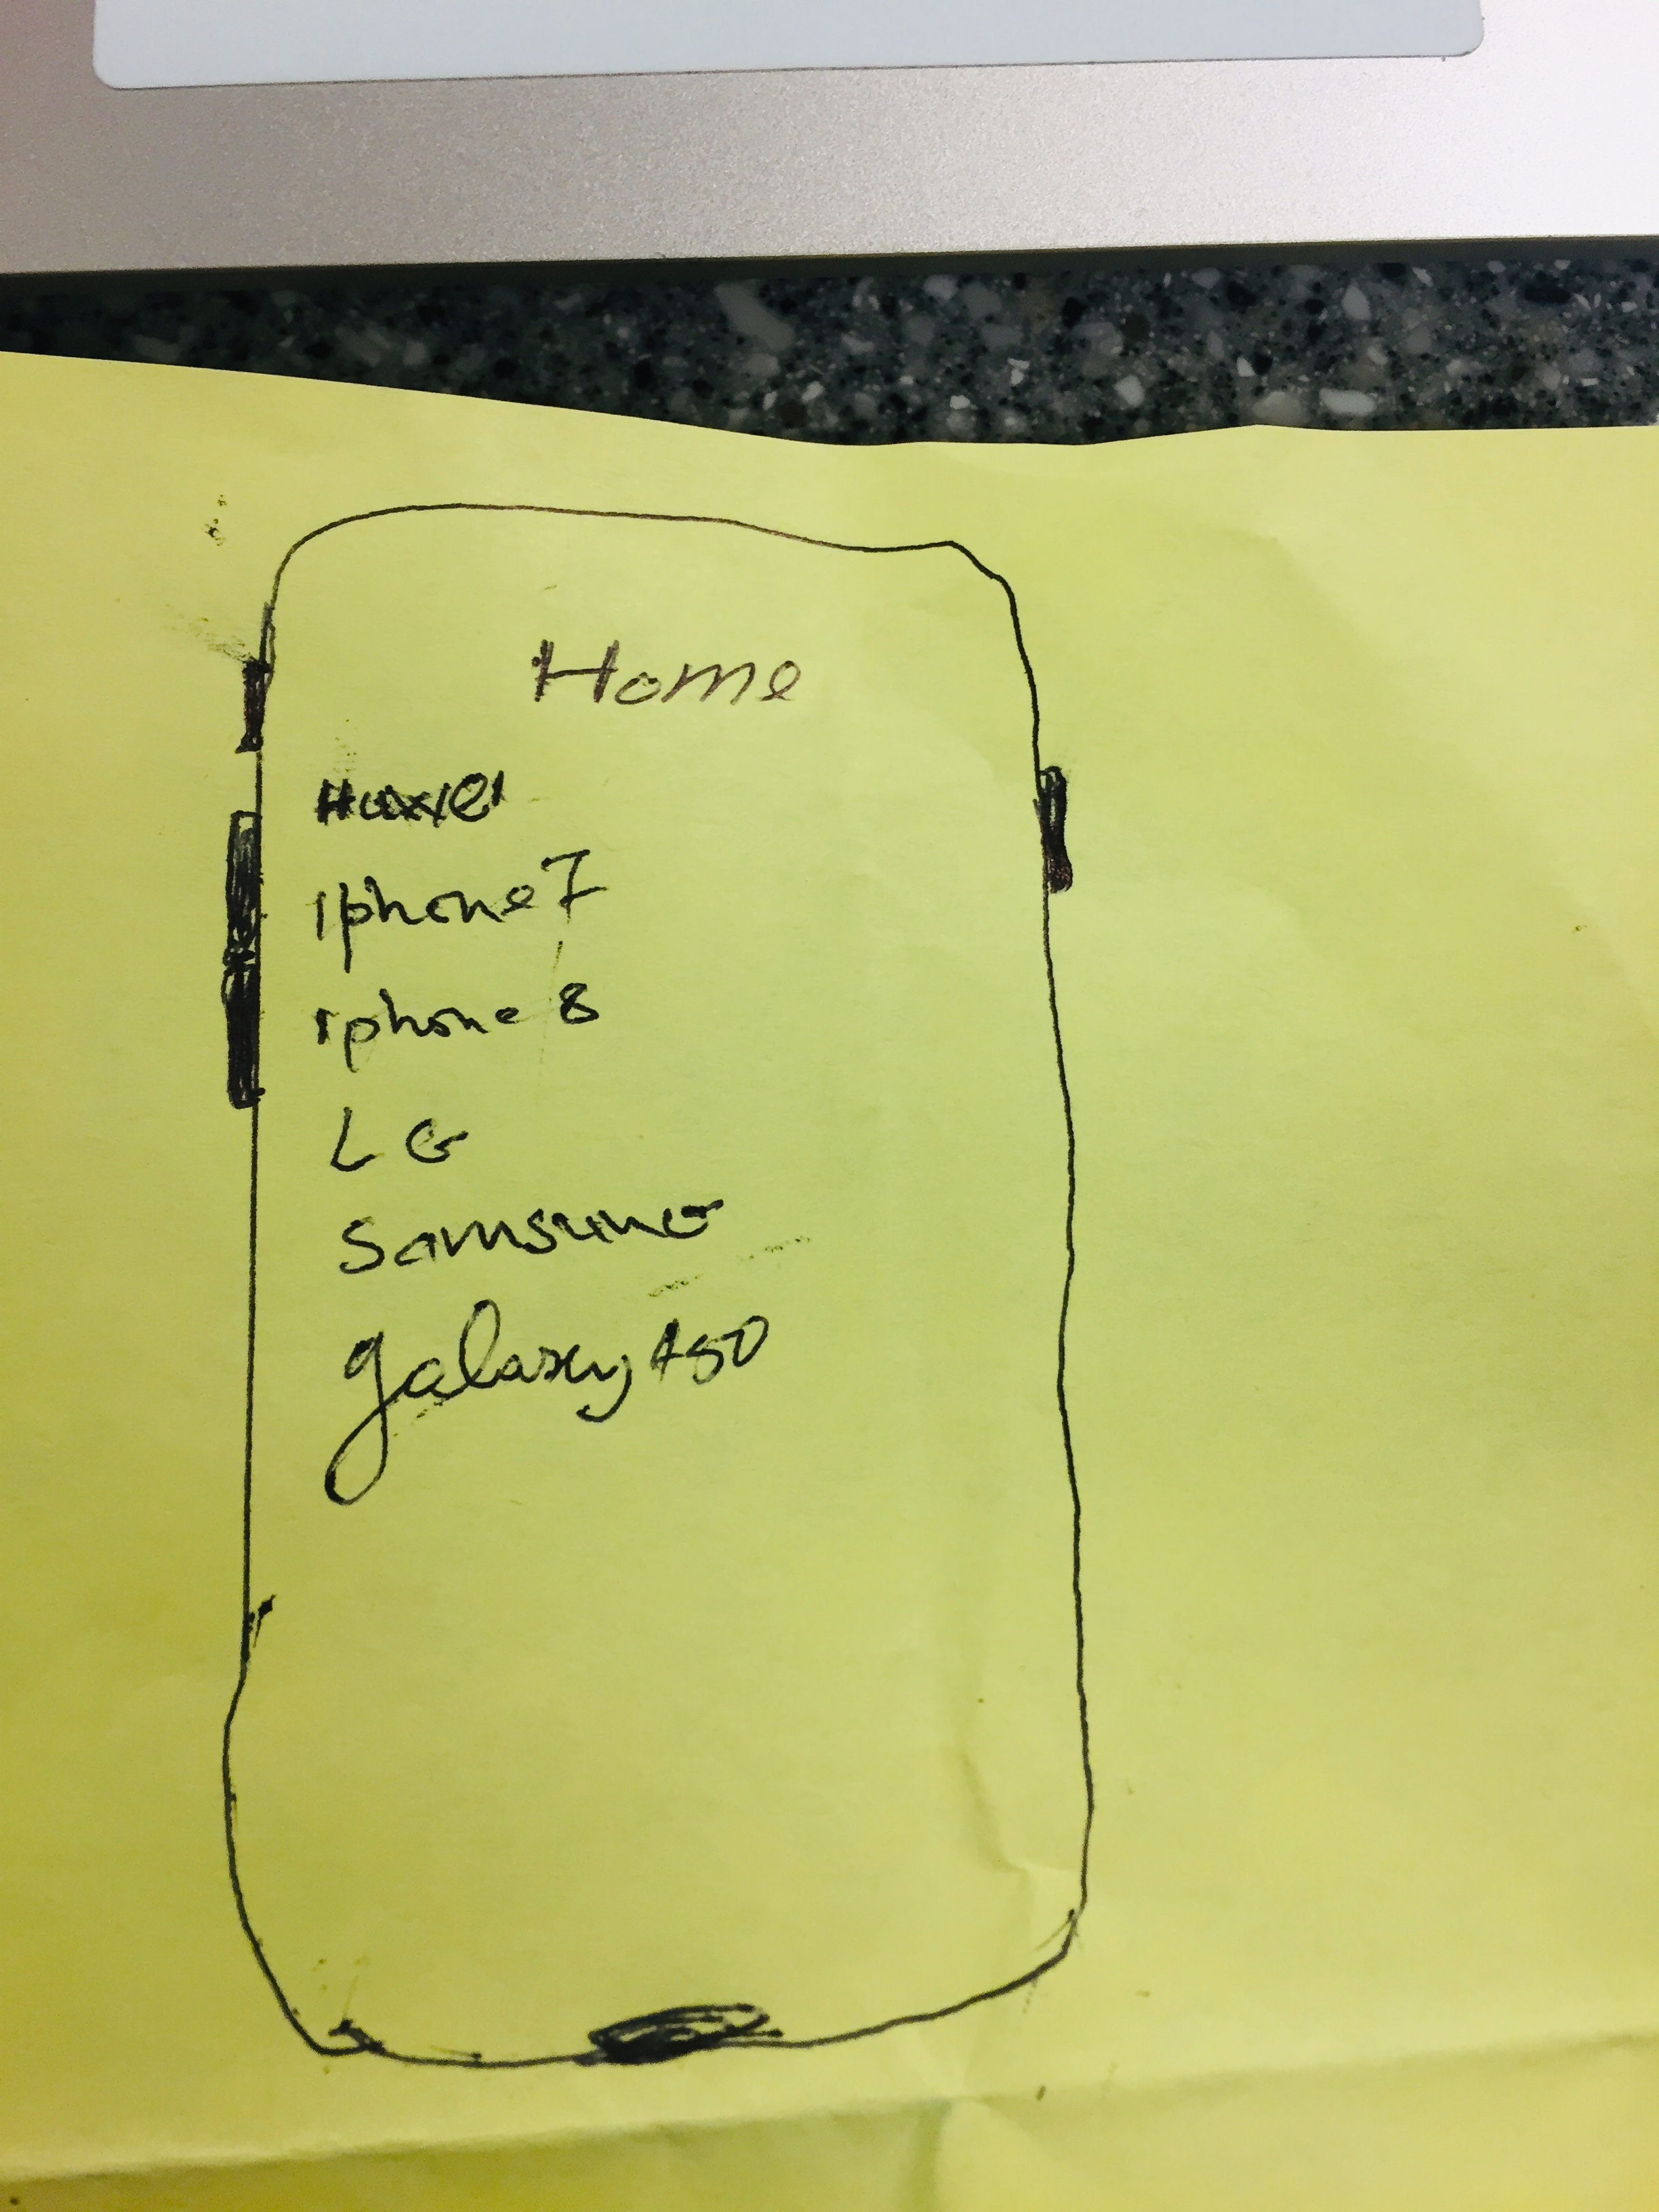 Home
Iphone 7
iphone 8
LG
SamsunG
galaxy A50